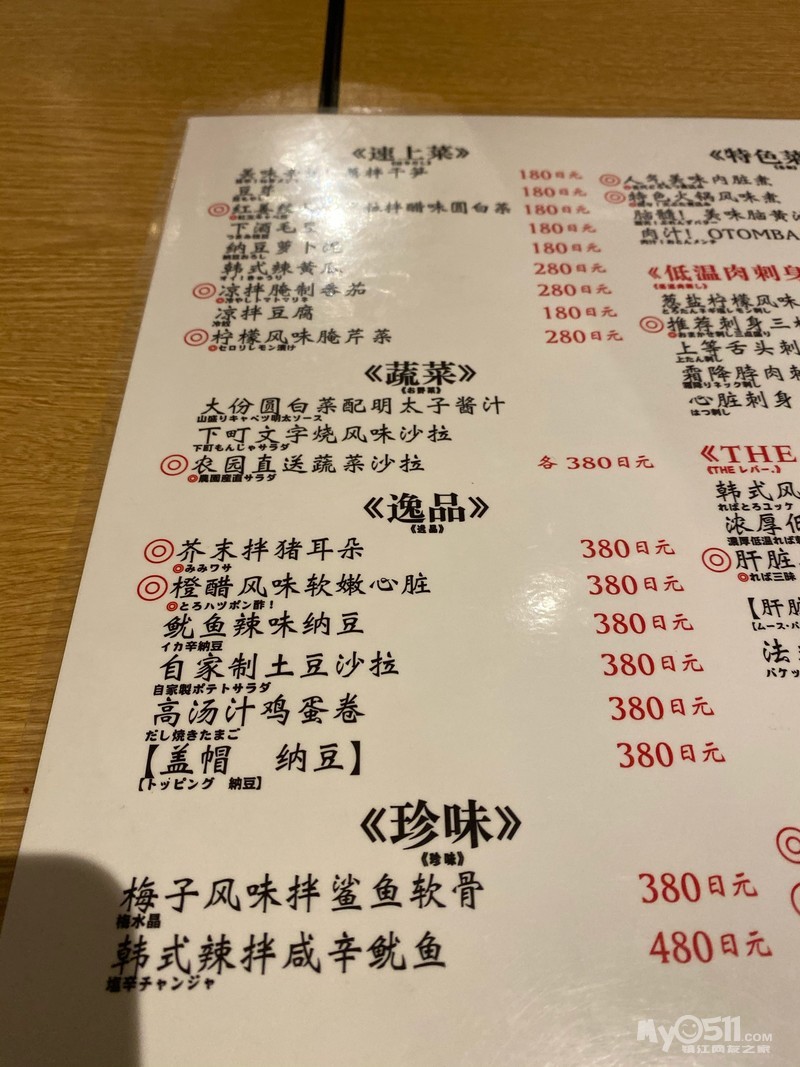 《速上菜》
180日元
豆芽 180日元
◎红姜 拌醋味圆白菜 180日元
下酒毛豆 180日元
纳豆萝卜泥 180日元
納豆おろし
韩式辣黄瓜 280日元
◎凉拌腌制番茄 280日元
◎冷やしトマトマリネ
凉拌豆腐 180日元
冷奴
◎柠檬风味腌芹菜 280日元
◎セロリレモン漬け
《蔬菜》
《お野菜》
大份圆白菜配明太子酱汁
山盛りキャベツ明太ソース
下町文字烧风味沙拉
下町もんじゃサラダ
◎农园直送蔬菜沙拉 各 380日元
◎農園産直サラダ
《逸品》
《逸品》
◎芥末拌猪耳朵 380日元
◎みみワサ
◎橙醋风味软嫩心脏 380日元
◎とろハツポン酢！
鱿鱼辣味纳豆 380日元
イカ辛納豆
自家制土豆沙拉 380日元
自家製ポテトサラダ
高汤汁鸡蛋卷 380日元
だし焼きたまご
【盖帽　纳豆】 380日元
【トッピング　納豆】
《珍味》
《珍味》
梅子风味拌鲨鱼软骨 380日元
梅水晶
韩式辣拌咸辛鱿鱼 480日元
塩辛チャンジャ
《特色菜
◎人气美味内脏煮
◎特色火锅风味煮
脑髓！美味脑黄
肉汁！OTOMBA
《低温肉刺身
葱盐柠檬风味
◎推荐刺身三
◎おまかせ刺し三点盛り
上等舌头刺
上たん刺し
霜降脖肉刺
霜降りネック刺し
心脏刺身
はつ刺し
《THE
《THE レバー》
韩式风
ればとろユッケ
浓厚低
◎肝脏
◎れば三昧
【肝脏
【ムース・パ
法
バケッ
My0511.COM
镇江网友之家